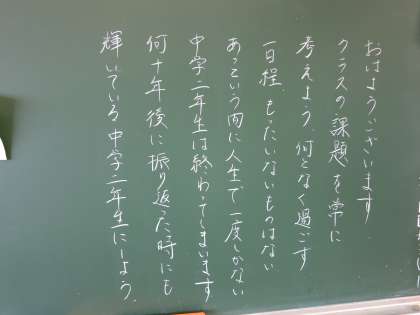 おはようございます
クラスの課題を常に
考えよう。何となく過ごす
一日程、もったいないものはない
あっという間に人生で一度しかない
中学二年生は終わってしまいます
何十年後に振り返った時にも
輝いている中学二年生にしよう。